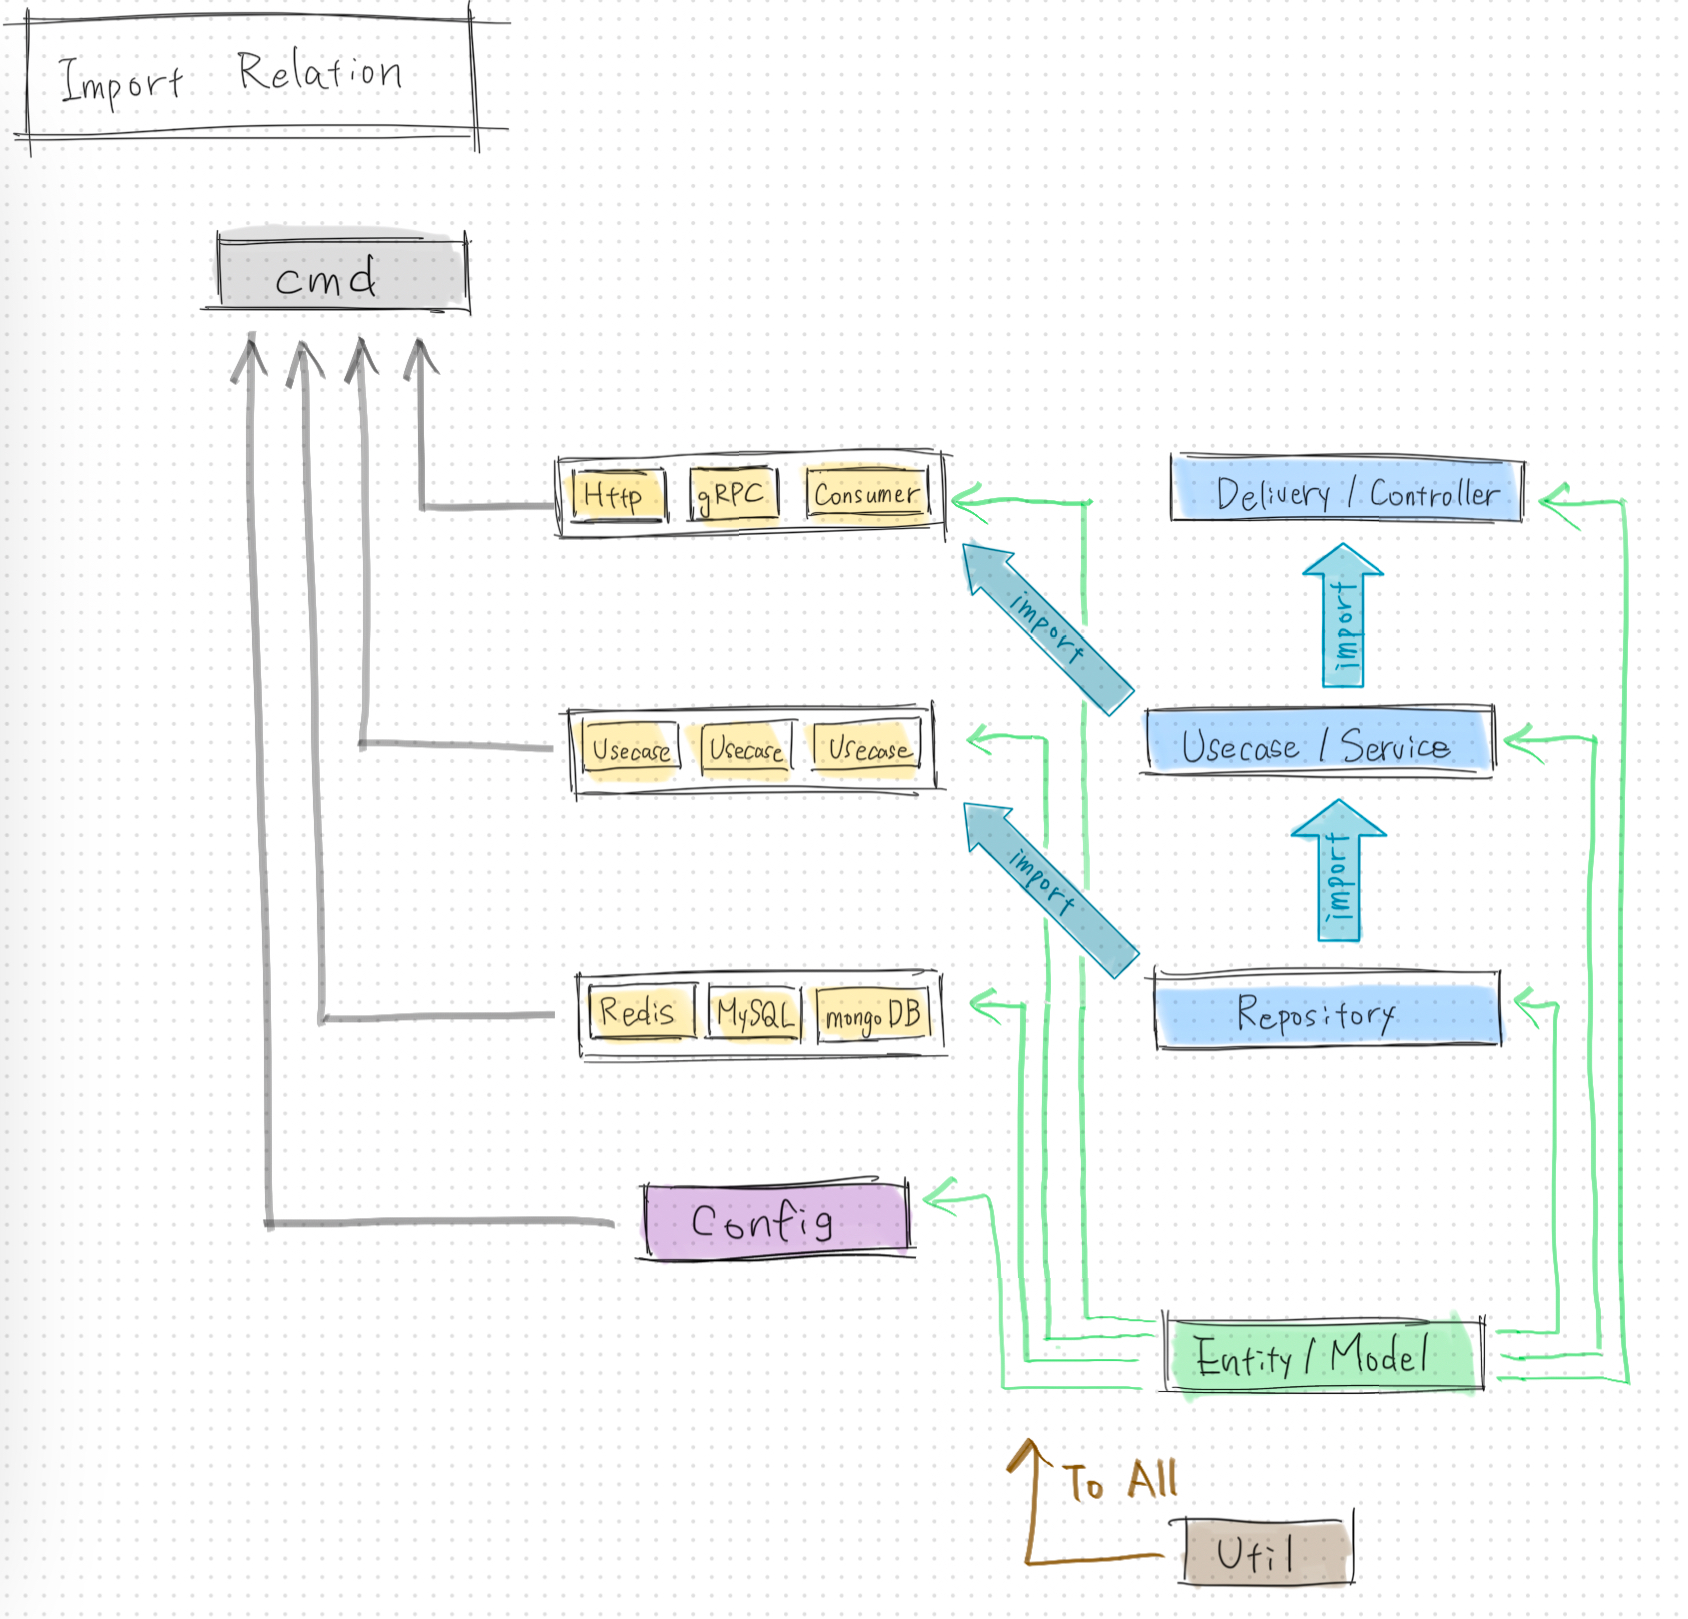 Import Relation
cmd
Http gRPC Consumer
Delivery / Controller
import
import
Usecase Usecase Usecase
Usecase / Service
import
import
Redis MySQL mongoDB
Repository
Config
Entity / Model
To All
Util